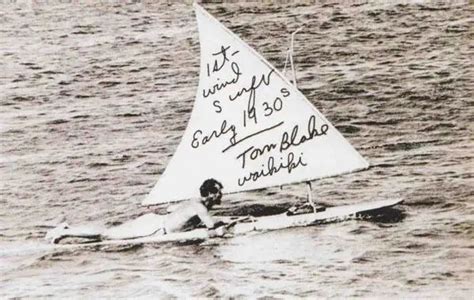 1st-
wind
Surfer
Early 1930s
Tom Blake
waikiki